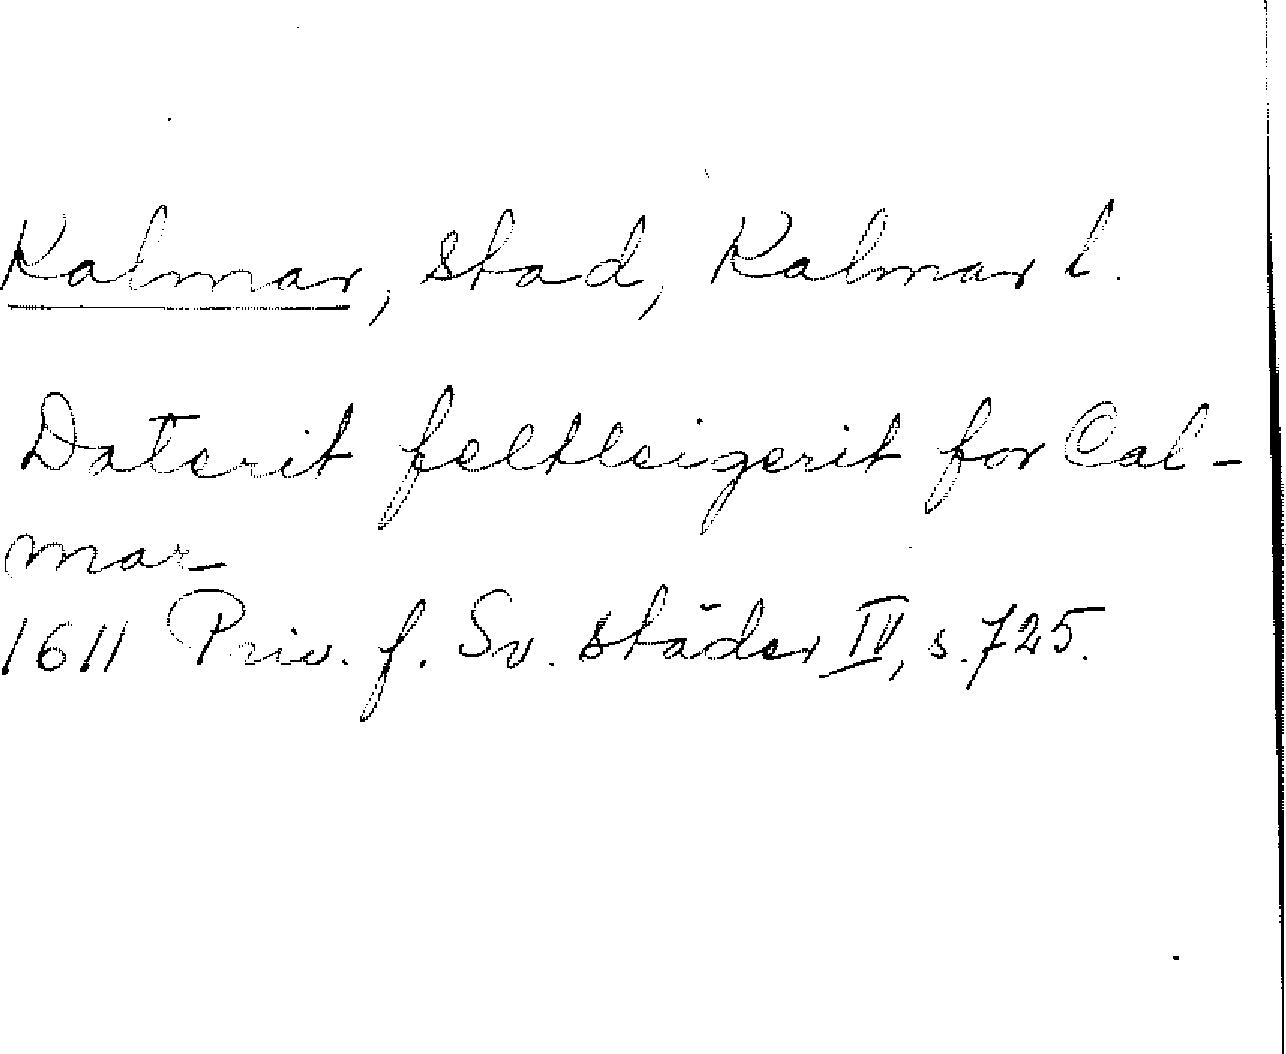 Kalmar, stad, Kalmar l.
Daterit feltleigerit for Cal-
mar
1611 Priv. f. Sv. städer IV, s. 725.